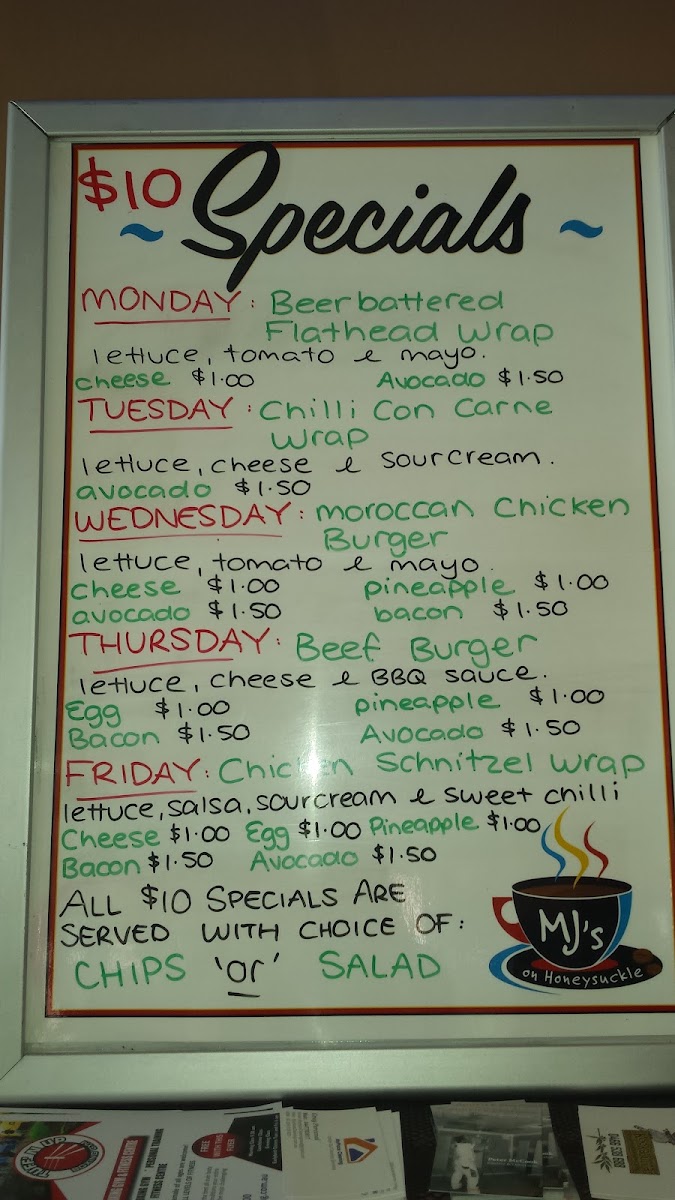 $10 ~ Specials ~
MONDAY: Beer battered
Flathead Wrap
lettuce, tomato & mayo.
cheese $1.00 Avocado $1.50
TUESDAY: Chilli Con Carne
Wrap
lettuce, cheese & sourcream.
avocado $1.50
WEDNESDAY: moroccan Chicken
Burger
lettuce, tomato & mayo.
cheese $1.00 pineapple $1.00
avocado $1.50 bacon $1.50
THURSDAY: Beef Burger
lettuce, cheese & BBQ sauce.
Egg $1.00 pineapple $1.00
Bacon $1.50 Avocado $1.50
FRIDAY: Chicken Schnitzel Wrap
lettuce, salsa, sourcream & sweet chilli
Cheese $1.00 Egg $1.00 Pineapple $1.00
Bacon $1.50 Avocado $1.50
ALL $10 SPECIALS ARE
SERVED WITH CHOICE OF:
CHIPS 'or' SALAD
MJ's
on Honeysuckle
FREE
WITH THIS
FLYER